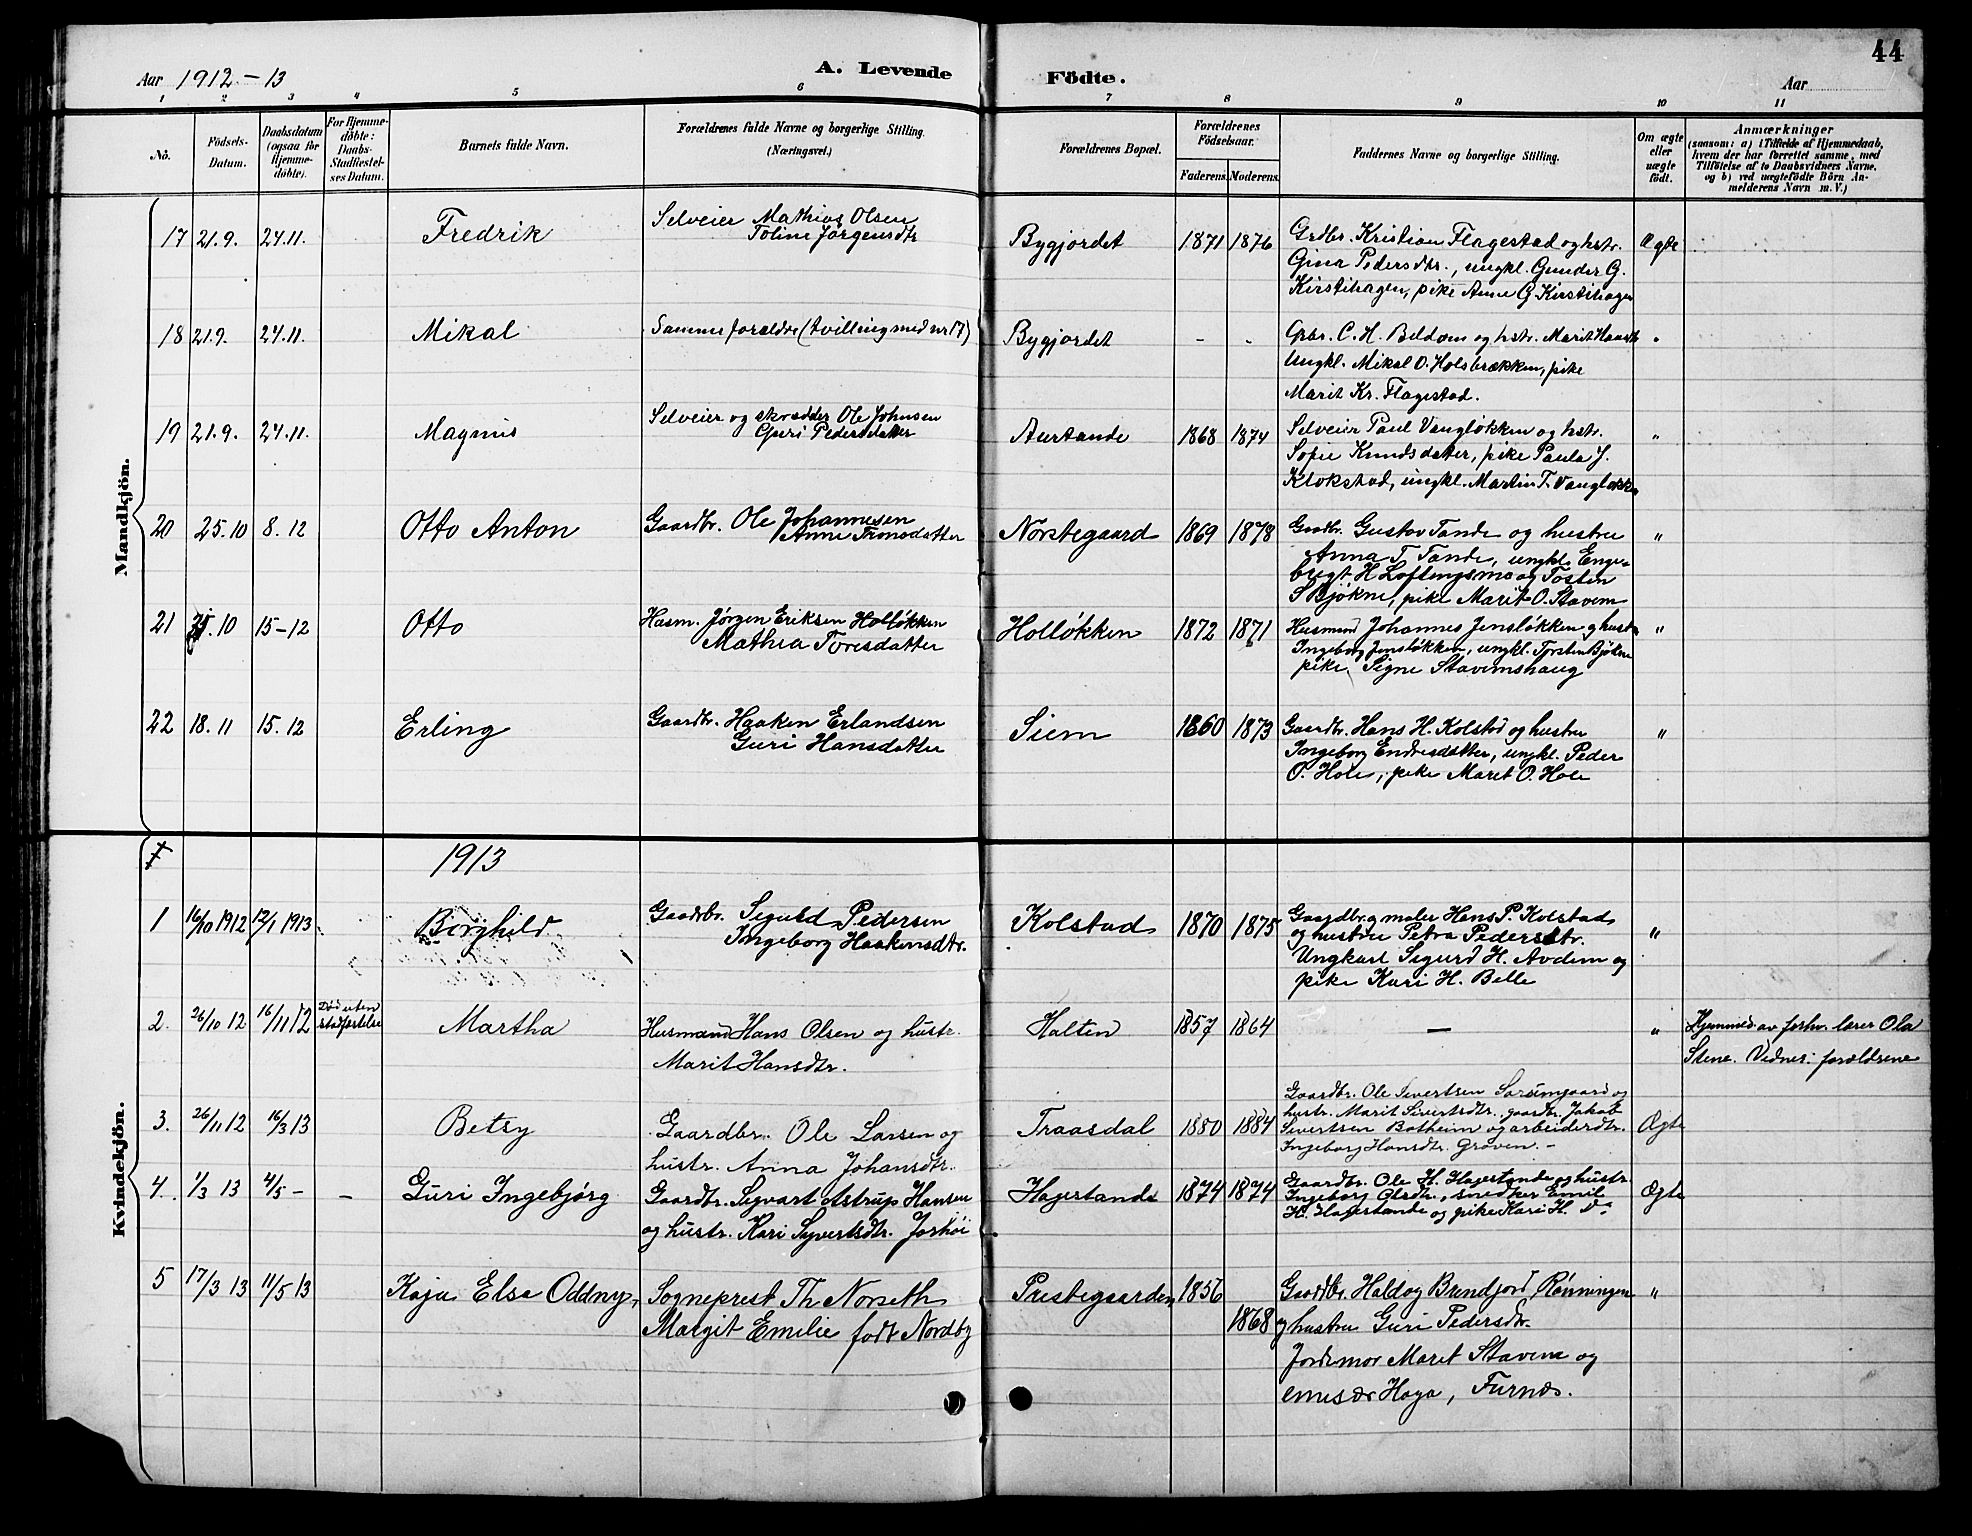 Aar 1912-13
A. Levende
Födte.
Aar
44
1 2 3 4 5 6 7 8 9 10 11
No.
Födsels-
Datum.
Daabsdatum
(ogsaa for
Hjemme-
döbte).
For Hjemme-
döbte:
Daabs-
Stadfæstel-
ses Datum.
Barnets fulde Navn.
Forældrenes fulde Navne og borgerlige Stilling.
(Næringsvei.)
Forældrenes Bopæl.
Forældrenes
Födselsaar.
Faderens. Moderens.
Faddernes Navne og borgerlige Stilling.
Om ægte
eller
uægte
födt.
Anmærkninger
(saasom: a) i Tilfælde af Hjemmedaab,
hvem der har forrettet samme, med
Tilföielse af to Daabsvidners Navne,
og b) ved uægtefödte Börn An-
melderens Navn m. V.)
Mandkjön.
17 21.9. 24.11. Fredrik
Selveier Mathias Olsen
Toline Jørgensdtr
Bygjordet 1871 1876
Grdbr. Kristian Flagestad og hstr.
Gina Pedersdtr., ungkl. Gunder G.
Kirstihagen, pike Anne G Kirstihagen
Ægte
18 21.9. 24.11. Mikal
Samme forældre (tvilling med nr 17)
Bygjordet - -
Gbr. C. H. Beldom og hstr. Marit
Ungkl. Mikal O. Holsbrækken, pike
Marit Kr. Flagestad.
"
19 21.9. 24.11. Magnus
Selveier og skrædder Ole Johnsen
Guri Pedersdatter
Aurtande 1868 1874
Selveier Paul Vangløkken og hstr.
Sofie Knudsdatter, pike Paula J.
Klokstad, ungkl. Martin T. Vangløkken
"
20 25.10 8.12 Otto Anton
Gaardbr. Ole Johannesen
Anne Tronsdatter
Norstegaard 1869 1878
Gaadb. Gustav Tande og hustru
Anna T Tande, ungkl. Enge-
brigt H Loftengsmo og Tosten
S Bjøkne, pike Marit O. Stavem
"
21 .10 15-12 Otto
Husm. Jørgen Eriksen Holløkken
Mathea Toresdatter
Holløkken 1872 1871
Husmand Johannes Jensløkken og hustru
Ingeborg Jensløkken, ungkl. Torsten Bjøkne
pike Signe Stavemshaug
"
22 18.11 15.12 Erling
Gaardbr. Haaken Erlandsen
Guri Hansdatter
Siem 1860 1873
Gaardbr. Hans H. Kolstad og hustru
Ingeborg Endresdatter, ungkl. Peder
O. Hole, pike Marit O. Hole
"
Kvindekjön.
1913
1 16/10 1912 12/1 1913 Borghild
Gaardbr. Sigurd Pedersen
Ingeborg Haakensdtr.
Kolstad 1870 1875
Gaardbr. og maler Hans P. Kolstad
og hustru Petra Pedersdtr.
Ungkarl Sigurd H. Avdem og
pike Kari H. Belle
"
2. 26/10 12 16/11 12 Død uten
stadfæstelse
Martha
Husmand Hans Olsen og hustr.
Marit Hansdtr.
Halten 1857 1864
-
"
Hjemmed. av forhv. lærer Ola
Stene. Vidner: forældrene
3. 26/11 12 16/3 13 Betsy
Gaardbr. Ole Larsen og
hustr. Anna Johansdtr.
Traasdal 1880 1884
Gaardbr. Ole Sivertsen Sørumgaard og
hustr. Marit Sivertsdtr., gaardbr. Jakob
Sivertsen Botheim og arbeiderdtr.
Ingeborg Hansdtr. Grøven. -
Ægte
4. 1/3 13 4/5 - - Guri Ingebjørg
Gaardbr. Syvart Astrup Hansen
og hustr. Kari Syvertsdtr. Jorhøi
Hagestande 1874 1874
Gaardbr. Ole H. Hagestande og hustr.
Ingeborg Olsdtr., snedker Emil
H. Hagestande og pike Kari H. Do
Ægte
5 17/3 13 11/5 13 Kaja Else Oddny,
Sogneprest Th. Norseth
Margit Emilie født Nordby
Prestegaarden 1856
1868
Gaardbr. Haldog Brendjord, Rønningen
og hustru Guri Pedersdtr.
Jordemor Marit Stavem og
emisær Haga, Furnæs.
"